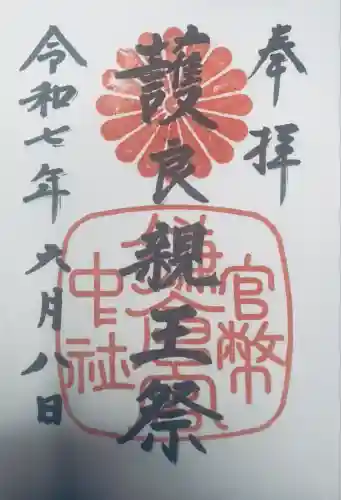 奉拝
護良親王祭
令和七年六月八日
官幣
鎌倉宮
中社